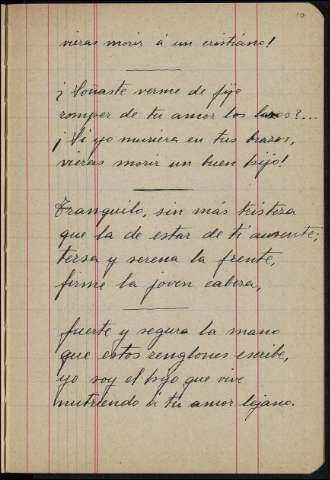 10
vieras morir á un cristiano!
¡Soñaste verme de fijo
romper de tu amor los lazos?...
¡Si yo muriera en tus brazos,
vieras morir un buen hijo!
Tranquilo, sin más tristeza
que la de estar de ti ausente;
tersa y serena la frente,
firme la joven cabeza,
fuerte y segura la mano
que estos renglones escribe,
yo soy el hijo que vive
nutriendo á tu amor lejano.